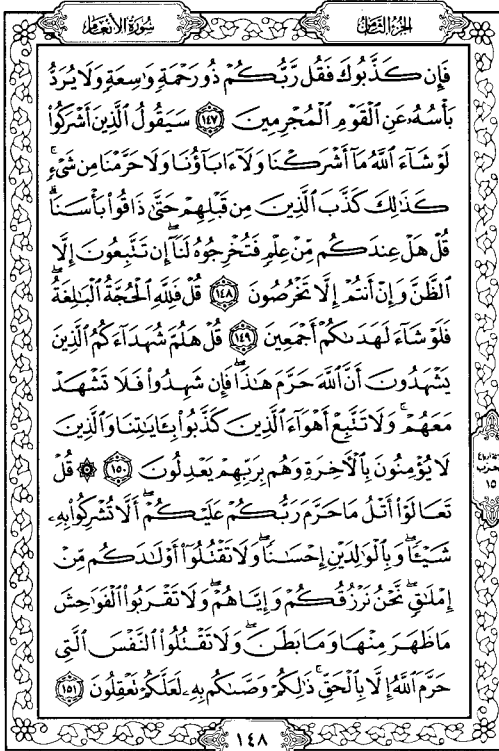 سُورَةُ الأَنْعَامِ
الجُزْءُ الثَّامِنُ
فَإِن كَذَّبُوكَ فَقُل رَّبُّكُمْ ذُو رَحْمَةٍ وَٰسِعَةٍ وَلَا يُرَدُّ
بَأْسُهُۥ عَنِ ٱلْقَوْمِ ٱلْمُجْرِمِينَ ﴿١٤٧﴾ سَيَقُولُ ٱلَّذِينَ أَشْرَكُوا۟
لَوْ شَآءَ ٱللَّهُ مَآ أَشْرَكْنَا وَلَآ ءَابَآؤُنَا وَلَا حَرَّمْنَا مِن شَىْءٍ ۚ
كَذَٰلِكَ كَذَّبَ ٱلَّذِينَ مِن قَبْلِهِمْ حَتَّىٰ ذَاقُوا۟ بَأْسَنَا ۗ
قُلْ هَلْ عِندَكُم مِّنْ عِلْمٍ فَتُخْرِجُوهُ لَنَآ ۖ إِن تَتَّبِعُونَ إِلَّا
ٱلظَّنَّ وَإِنْ أَنتُمْ إِلَّا تَخْرُصُونَ ﴿١٤٨﴾ قُلْ فَلِلَّهِ ٱلْحُجَّةُ ٱلْبَٰلِغَةُ ۖ
فَلَوْ شَآءَ لَهَدَىٰكُمْ أَجْمَعِينَ ﴿١٤٩﴾ قُلْ هَلُمَّ شُهَدَآءَكُمُ ٱلَّذِينَ
يَشْهَدُونَ أَنَّ ٱللَّهَ حَرَّمَ هَٰذَا ۖ فَإِن شَهِدُوا۟ فَلَا تَشْهَدْ
مَعَهُمْ ۚ وَلَا تَتَّبِعْ أَهْوَآءَ ٱلَّذِينَ كَذَّبُوا۟ بِـَٔايَٰتِنَا وَٱلَّذِينَ
لَا يُؤْمِنُونَ بِٱلْـَٔاخِرَةِ وَهُم بِرَبِّهِمْ يَعْدِلُونَ ﴿١٥٠﴾ ۞ قُلْ
تَعَالَوْا۟ أَتْلُ مَا حَرَّمَ رَبُّكُمْ عَلَيْكُمْ ۖ أَلَّا تُشْرِكُوا۟ بِهِۦ
شَيْـًٔا ۖ وَبِٱلْوَٰلِدَيْنِ إِحْسَٰنًا ۖ وَلَا تَقْتُلُوٓا۟ أَوْلَٰدَكُم مِّنْ
إِمْلَٰقٍ ۖ نَّحْنُ نَرْزُقُكُمْ وَإِيَّاهُمْ ۖ وَلَا تَقْرَبُوا۟ ٱلْفَوَٰحِشَ
مَا ظَهَرَ مِنْهَا وَمَا بَطَنَ ۖ وَلَا تَقْتُلُوا۟ ٱلنَّفْسَ ٱلَّتِى
حَرَّمَ ٱللَّهُ إِلَّا بِٱلْحَقِّ ۚ ذَٰلِكُمْ وَصَّىٰكُم بِهِۦ لَعَلَّكُمْ تَعْقِلُونَ ﴿١٥١﴾
الحزب
١٥
١٤٨